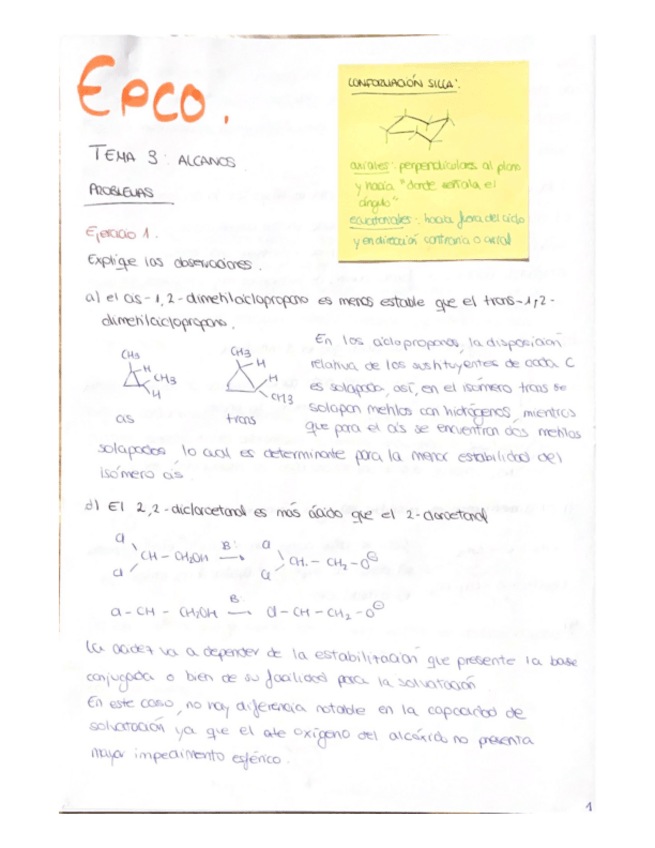 EPCO.
TEMA 3: ALCANOS
PROBLEMAS
Ejercicio 1.
Explique las observaciones.
CONFORMACIÓN SILLA:
axiales: perpendiculares al plano
y hacia "donde señala el
ángulo"
ecuatoriales: hacia fuera del ciclo
y en dirección contraria a axial
a) el cis-1,2-dimetilciclopropano es menos estable que el trans-1,2-
dimetilciclopropano.
CH3
H
CH3
H
cis
CH3
H
H
CH3
trans
En los ciclopropanos, la disposición
relativa de los sustituyentes de cada C
es solapada, así, en el isómero trans se
solapan metilos con hidrógenos, mientras
que para el cis se encuentran dos metilos
solapados, lo cual es determinante para la menor estabilidad del
isómero cis.
d) El 2,2-dicloroetanol es más ácido que el 2-cloroetanol
Cl
Cl
CH - CH2OH
B:
Cl
Cl
CH - CH2 - O⊖
Cl - CH - CH2OH
B:
Cl - CH - CH2 - O⊖
La acidez va a depender de la estabilización que presente la base
conjugada o bien de su facilidad para la solvatación.
En este caso, no hay diferencia notable en la capacidad de
solvatación ya que el oxígeno del no presenta
mayor impedimento estérico.
1